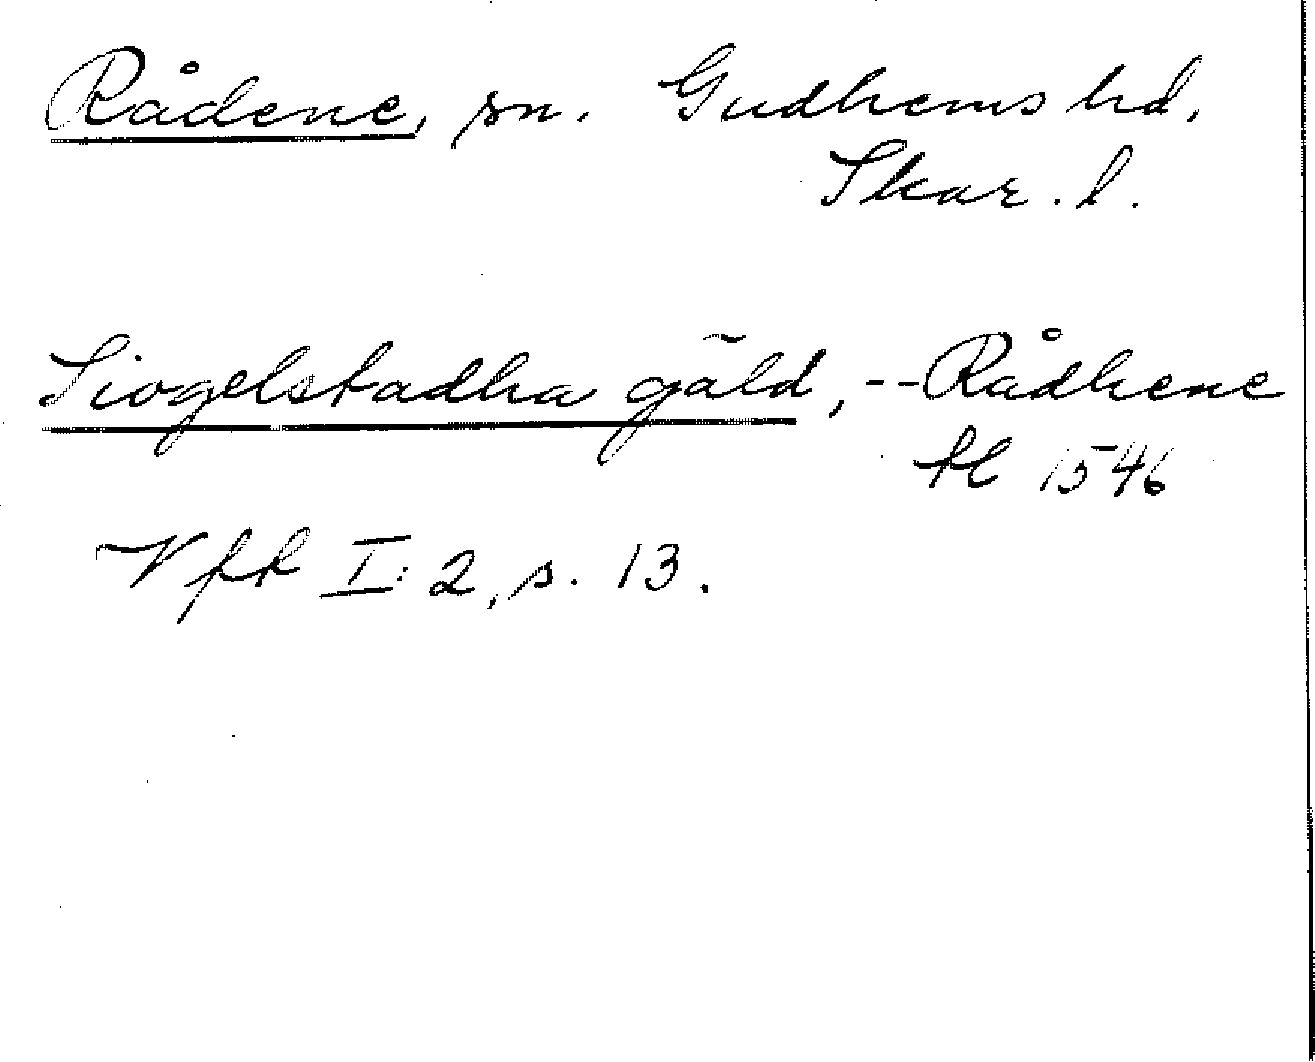 Rådene, sn. Gudhems hd,
Skar. l.
Siogelstadha gäld, -- Rådhene
1546
Vfk I:2, s. 13.